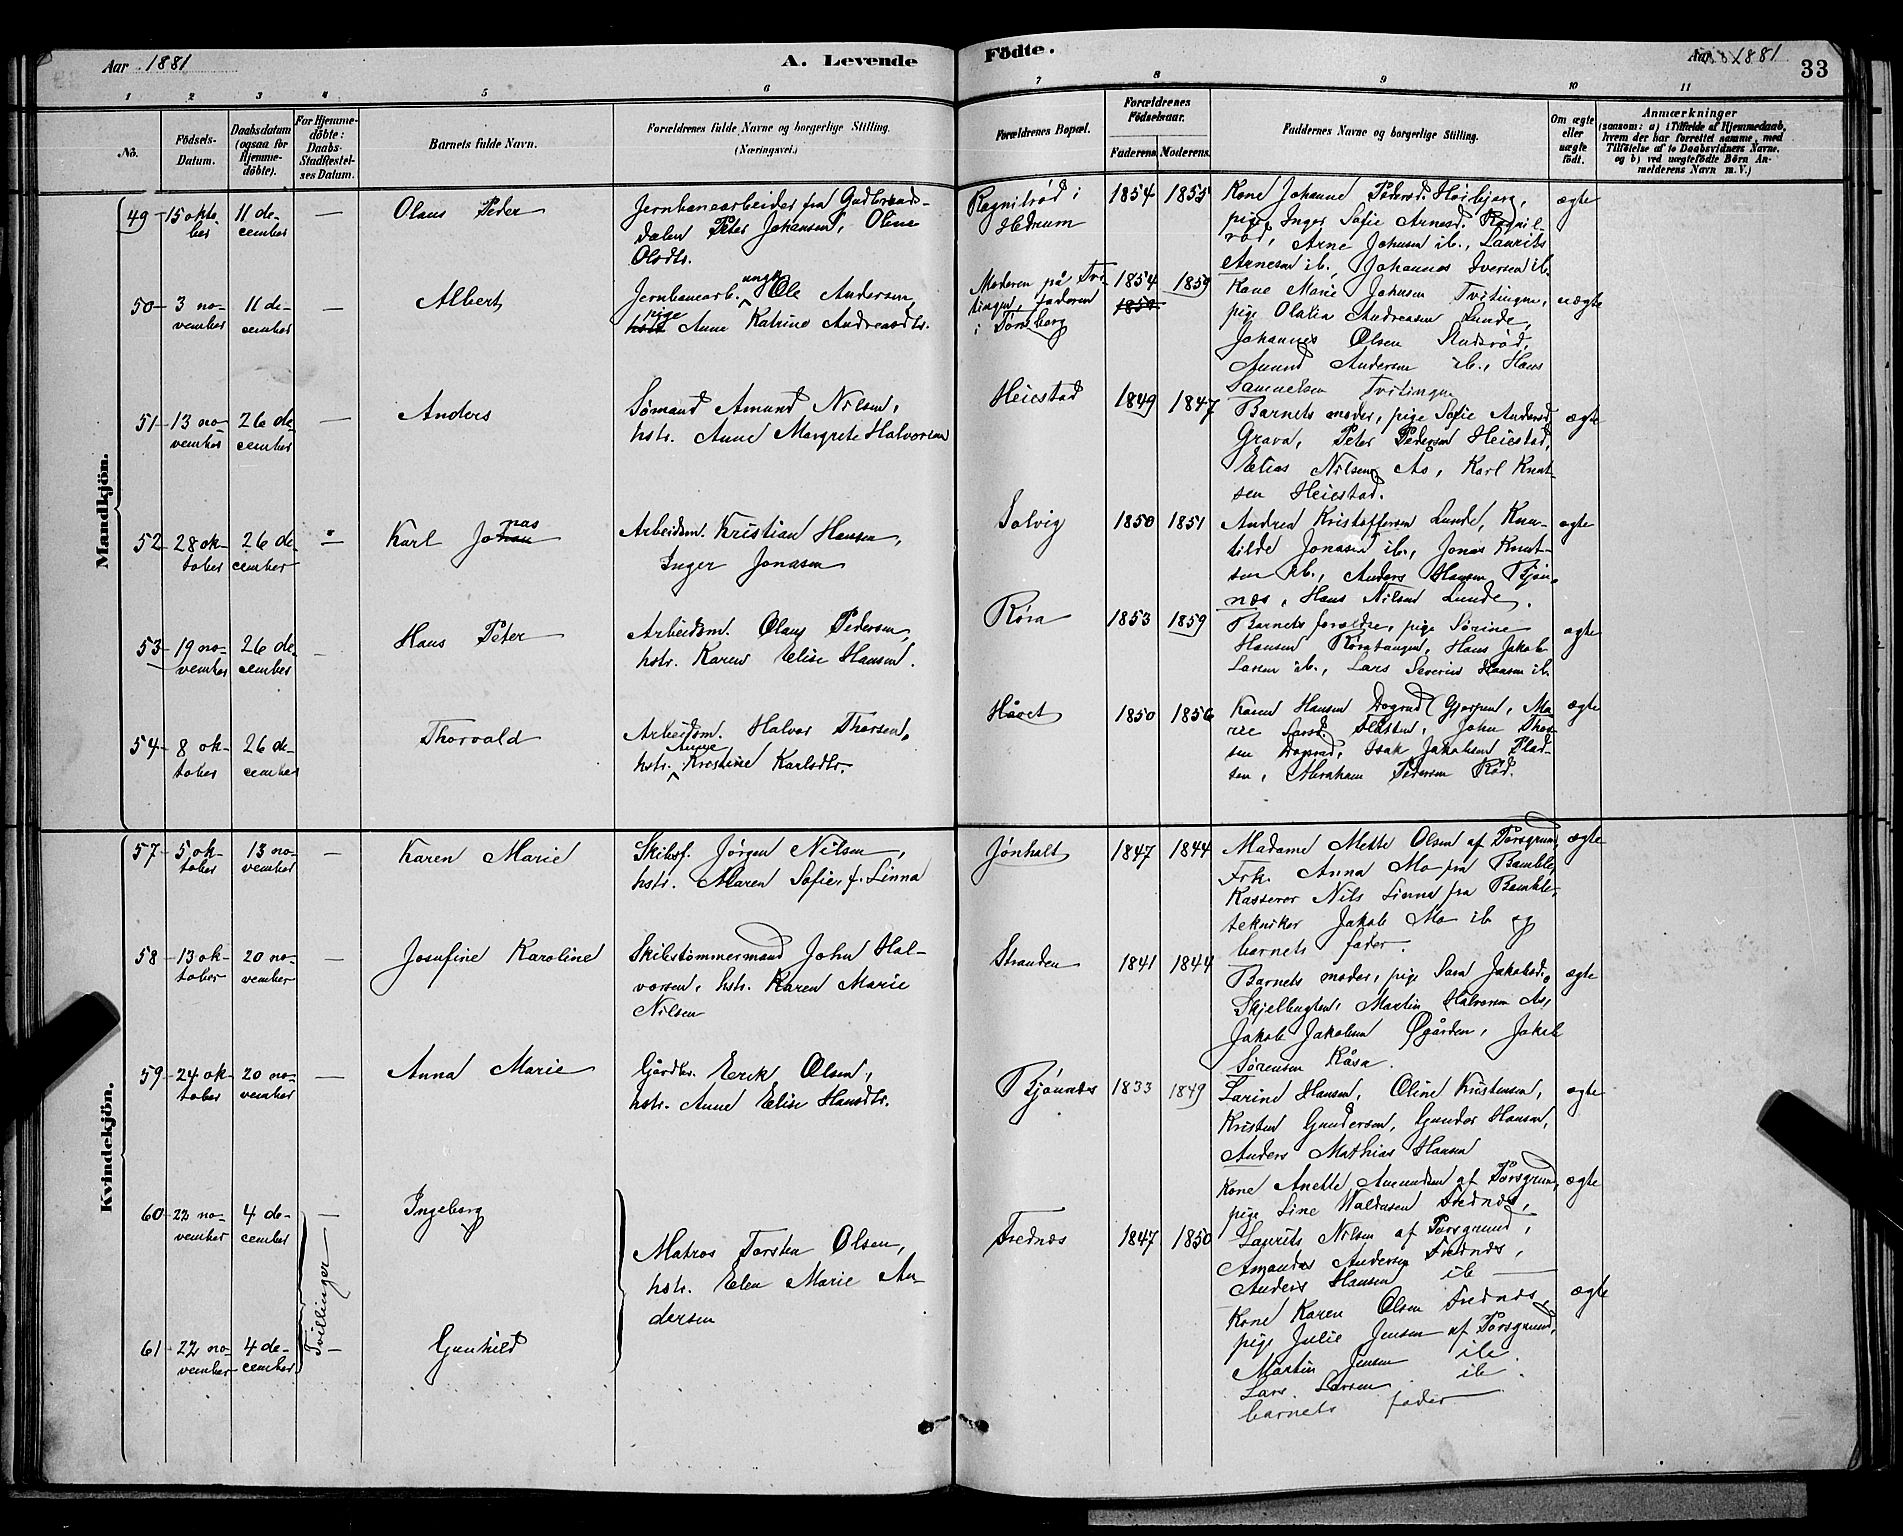 Aar 1881
A. Levende
Födte.
Aar 1881
33
1 2 3 4 5 6 7 8 9 10 11
No.
Födsels-
Datum.
Daabsdatum
(ogsaa for
Hjemme-
döbte).
For Hjemme-
döbte:
Daabs-
Stadfæstel-
ses Datum.
Barnets fulde Navn.
Forældrenes fulde Navne og borgerlige Stilling.
(Næringsvei.)
Forældrenes Bopæl.
Forældrenes
Födselsaar.
Faderens. Moderens.
Faddernes Navne og borgerlige Stilling.
Om ægte
eller
uægte
födt.
Anmærkninger
(saasom: a) i Tilfælde af Hjemmedaab,
hvem der har forrettet samme, med
Tilföielse af to Daabsvidners Navne,
og b) ved uægtefödte Börn An-
melderens Navn m. V.)
Mandkjön.
49 15 okto-
ber
11 de-
cember
—
Olaus Peder
Jernbanearbeider fra Gudbrands-
dalen Peter Johansen, Oline
Olsdtr.
Ragnilrød i
Hedrum
1854 1855
Kone Johanne Pedersd. Høibjerg,
pige Inger Sofie Arnesd. Ragnil-
rød, Arne Johnsen ib., Laurits
Arnesen ib., Johannes Iversen ib.
ægte
50 3 no-
vember
11 de-
cember
—
Albert
Jernbanearb. ungk. Ole Andersen,
pige Anne Katrine Andreasdtr.
Moderen på Tvi-
tingen, faderen
i Tønsberg
1854 1859
1858
Kone Marie Johnsen Tvitingen,
pige Olalia Andreasen Lunde,
Johannes Olsen Stulsrød,
Amund Andersen ib., Hans
Samuelsen Tvitingen
uægte
51 13 no-
vember
26 de-
cember
—
Anders
Sømand Amund Nilsen,
hstr. Anne Margrete Halvorsen
Heiestad
1849 1847
Barnets moder, pige Sofie Andersd.
Grava, Peter Pedersen Heiestad,
Elias Nilsen Ås, Karl Knut-
sen Heiestad.
ægte
52 28 ok-
tober
26 de-
cember
—
Karl Jonas
Arbeidsm. Kristian Hansen,
Inger Jonasen
Solvig
1850 1851
Andrea Kristoffersen Lunde, Knu-
tilde Jonasen ib., Jonas Knut-
sen ib., Anders Hansen Bjøn-
næs, Hans Nilsen Lunde.
ægte
53 19 no-
vember
26 de-
cember
—
Hans Peter
Arbeidsm. Olaus Pedersen,
hstr. Karen Elise Hansen.
Røra
1853 1859
Barnets forældre, pige Sørine
Hansen Røratangen, Hans Jakob
Larsen ib., Lars Severin Hansen ib.
ægte
54 8 ok-
tober
26 de-
cember
Thorvald
Arbeidsm. Halvor Thorsen,
hstr. Anne Kristine Karlsdtr.
Håvet
1850 1856
Karen Hansen Dograd Gjerpen, Ma-
rie Larsd. Flåtten, John Thor-
sen Dograd, Isak Jakobsen Flad-
sen, Abraham Pedersen Rød.
ægte
Kvindekjön.
57 5 ok-
tober
13 no-
vember
—
Karen Marie
Skibsf. Jørgen Nilsen,
hstr. Maren Sofie f. Linna
Jønholt
1847 1844
Madame Mette Olsen af Porsgrund,
Frk. Anna Mo fra Bamble,
Kasserer Nils Linna fra Bamble,
tekniker Jakob Mo ib og
barnets fader.
ægte
58 13 ok-
tober
20 no-
vember
—
Josefine Karoline
Skibstømmermand John Hal-
vorsen, hstr. Karen Marie
Nilsen
Stranden
1841 1844
Barnets moder, pige Sara Jakobsd.
Skjelbugten, Martin Halvorsen Ås,
Jakob Jakobsen Øgården, Jakob
Sørensen Kåsa.
ægte
59 24 ok-
tober
20 no-
vember
—
Anna Marie
Gårdbr. Erik Olsen,
hstr. Anne Elise Hansdtr.
Bjønnæs
1833 1849
Larine Hansen, Oline Kristensen,
Kristen Gundersen, Gunder Hansen,
Anders Mathias Hansen
ægte
60 22 no-
vember
4 de-
cember
—
Tvillinger
Ingeborg
Matros Torsten Olsen,
hstr. Elen Marie An-
dersen
Frednæs
1847 1850
Kone Anette Amundsen af Porsgrund,
pige Line Waldusen Frednæs,
Laurits Nilsen af Porsgrund,
Amandus Andersen Frednæs,
Anders Hansen ib —
ægte
61 22 no-
vember
4 de-
cember
—
Gunhild
Kone Karen Olsen Frednæs,
pige Julie Jensen af Porsgrund,
Martin Jensen ib.
Lars Larsen ib.
barnets fader
ægte